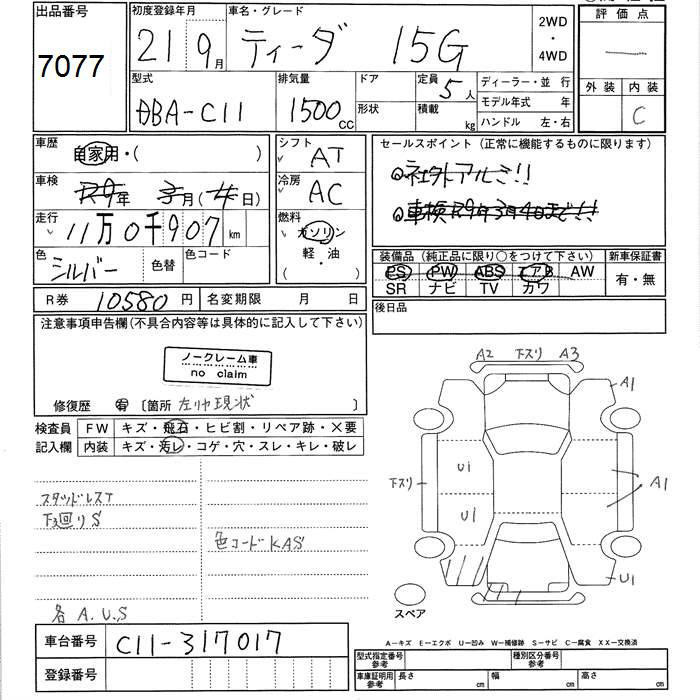 出品番号
7077
初度登録年月
21 9月
車名・グレード
ティーダ 15G
2WD
・
4WD
評価点
外装 内装
C
型式
DBA-C11
排気量
1500cc
ドア
形状
定員
5人
積載
kg
ディーラー・並 行
モデル年式 年
ハンドル 左・右
車歴
自家用・( )
シフト
AT
セールスポイント (正常に機能するものに限ります)
◎社外アルミ!!
◎車検R9年3月4日まで!!
車検
R9年 3月(4日)
冷房
AC
走行
11万0千907km
燃料
ガソリン
軽・油
( )
色
シルバー
色替
色コード
装備品 (純正品に限り○をつけて下さい)
PS PW ABS エアB AW
SR ナビ TV カワ
新車保証書
有・無
R券 10580円
名変期限 月 日
後日品
注意事項申告欄(不具合内容等は具体的に記入して下さい)
ノークレーム車
no claim
修復歴 有 〔箇所 左リヤ現状 〕
検査員
記入欄
FW キズ・飛石・ヒビ割・リペア跡・×要
内装 キズ・汚レ・コゲ・穴・スレ・キレ・破レ
スタッドレスT
下廻りS
色コードKAS
各A.U.S
A2 下スリ A3
A1
下スリ
U1
U1
A1
U1
スペア
A-キズ E-エクボ U-凹み W-補修跡 S-サビ C-腐食 XX-交換済
車台番号 C11-317017
登録番号
型式指定番号
参考
種別区分番号
参考
車庫証明用
参考
長さ cm
幅 cm
高さ cm